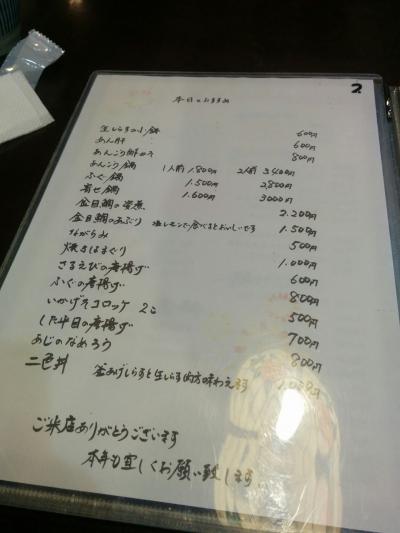 2
本日のおすすめ
生しらすの小鉢 600円
あん肝 600円
あんこう鮮 800円
あんこう鍋 1人前 1.800円 2人前 3400円
ふぐ鍋 1.500円 2800円
寄せ鍋 1.600円 3000円
金目鯛の姿煮 2.200円
金目鯛のあぶり 塩レモンで食べるとおいしいです 1.500円
ながらみ 500円
焼きはまぐり 1.000円
さるえびの唐揚げ 600円
ふぐの唐揚げ 800円
いかげそコロッケ 2コ 500円
した平目の唐揚げ 700円
あじのなめろう 800円
二色丼 釜あげしらすと生しらす両方味わえます
ご来店ありがとうございます
本年も宜しくお願い致します